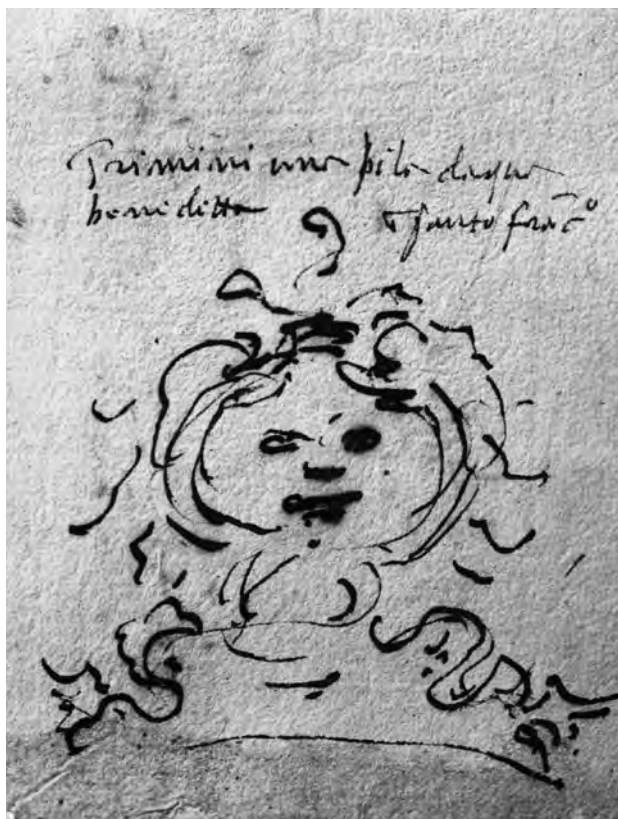 Arimini una pila daqua
beneditta A Santo frac̄º